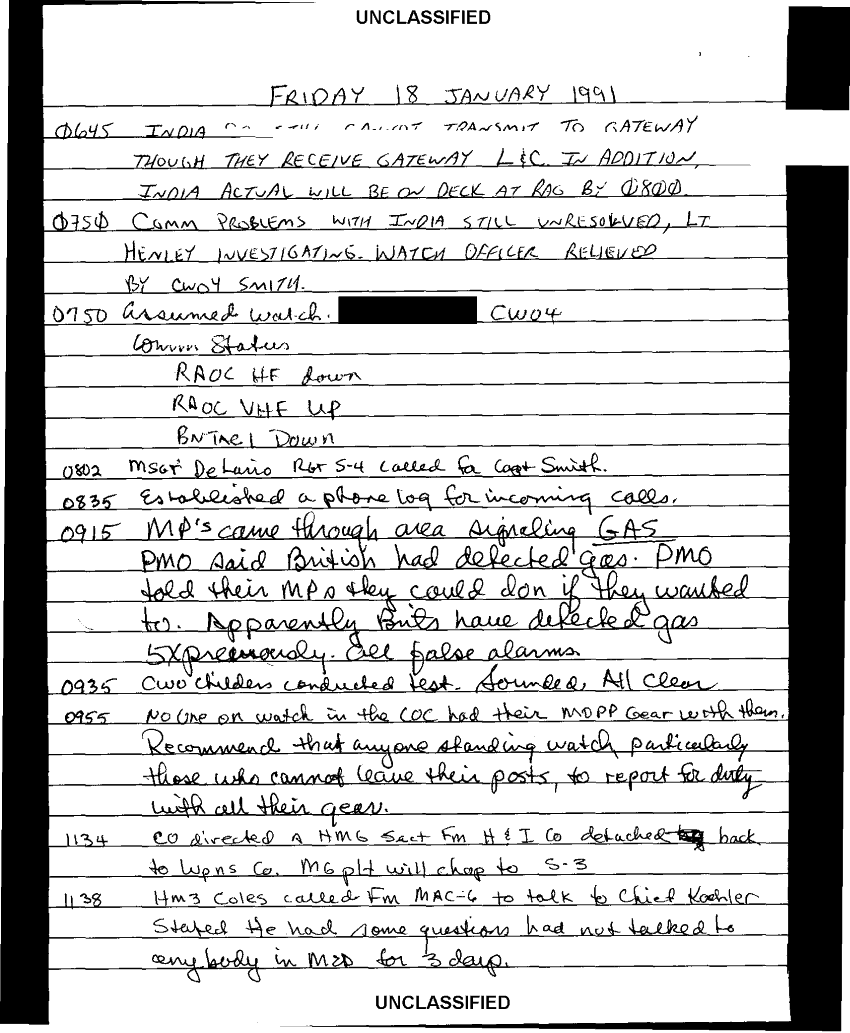 UNCLASSIFIED
FRIDAY 18 JANUARY 1991
0645 INDIA CANNOT TRANSMIT TO GATEWAY
THOUGH THEY RECEIVE GATEWAY L&C. IN ADDITION,
INDIA ACTUAL WILL BE ON DECK AT RAG BY 0800.
0750 COMM PROBLEMS WITH INDIA STILL UNRESOLVED, LT
HENLEY INVESTIGATING. WATCH OFFICER RELIEVED
BY CWO4 SMITH.
0750 Assumed watch. CWO4
Comm Status
RAOC HF down
RAOC VHF UP
BN TAC 1 Down
0802 MSGT DeLario RGT S-4 called for Capt Smith.
0835 Established a phone log for incoming calls.
0915 MP's came through area signaling GAS
PMO said British had detected gas. PMO
told their MPs they could don if they wanted
to. Apparently Brits have detected gas
5X previously. All false alarms.
0935 CWO Childers conducted test. Sounded, All Clear
0955 No one on watch in the COC had their MOPP Gear with them.
Recommend that anyone standing watch, particularly
those who cannot leave their posts, to report for duty
with all their gear.
1134 CO directed a HMG Sect Fm H & I Co detached back
to Wpns Co. MG plt will chop to S-3
1138 Hm3 Coles called Fm MAC-6 to talk to Chief Koehler
Stated He had some questions had not talked to
any body in MED for 3 days.
UNCLASSIFIED